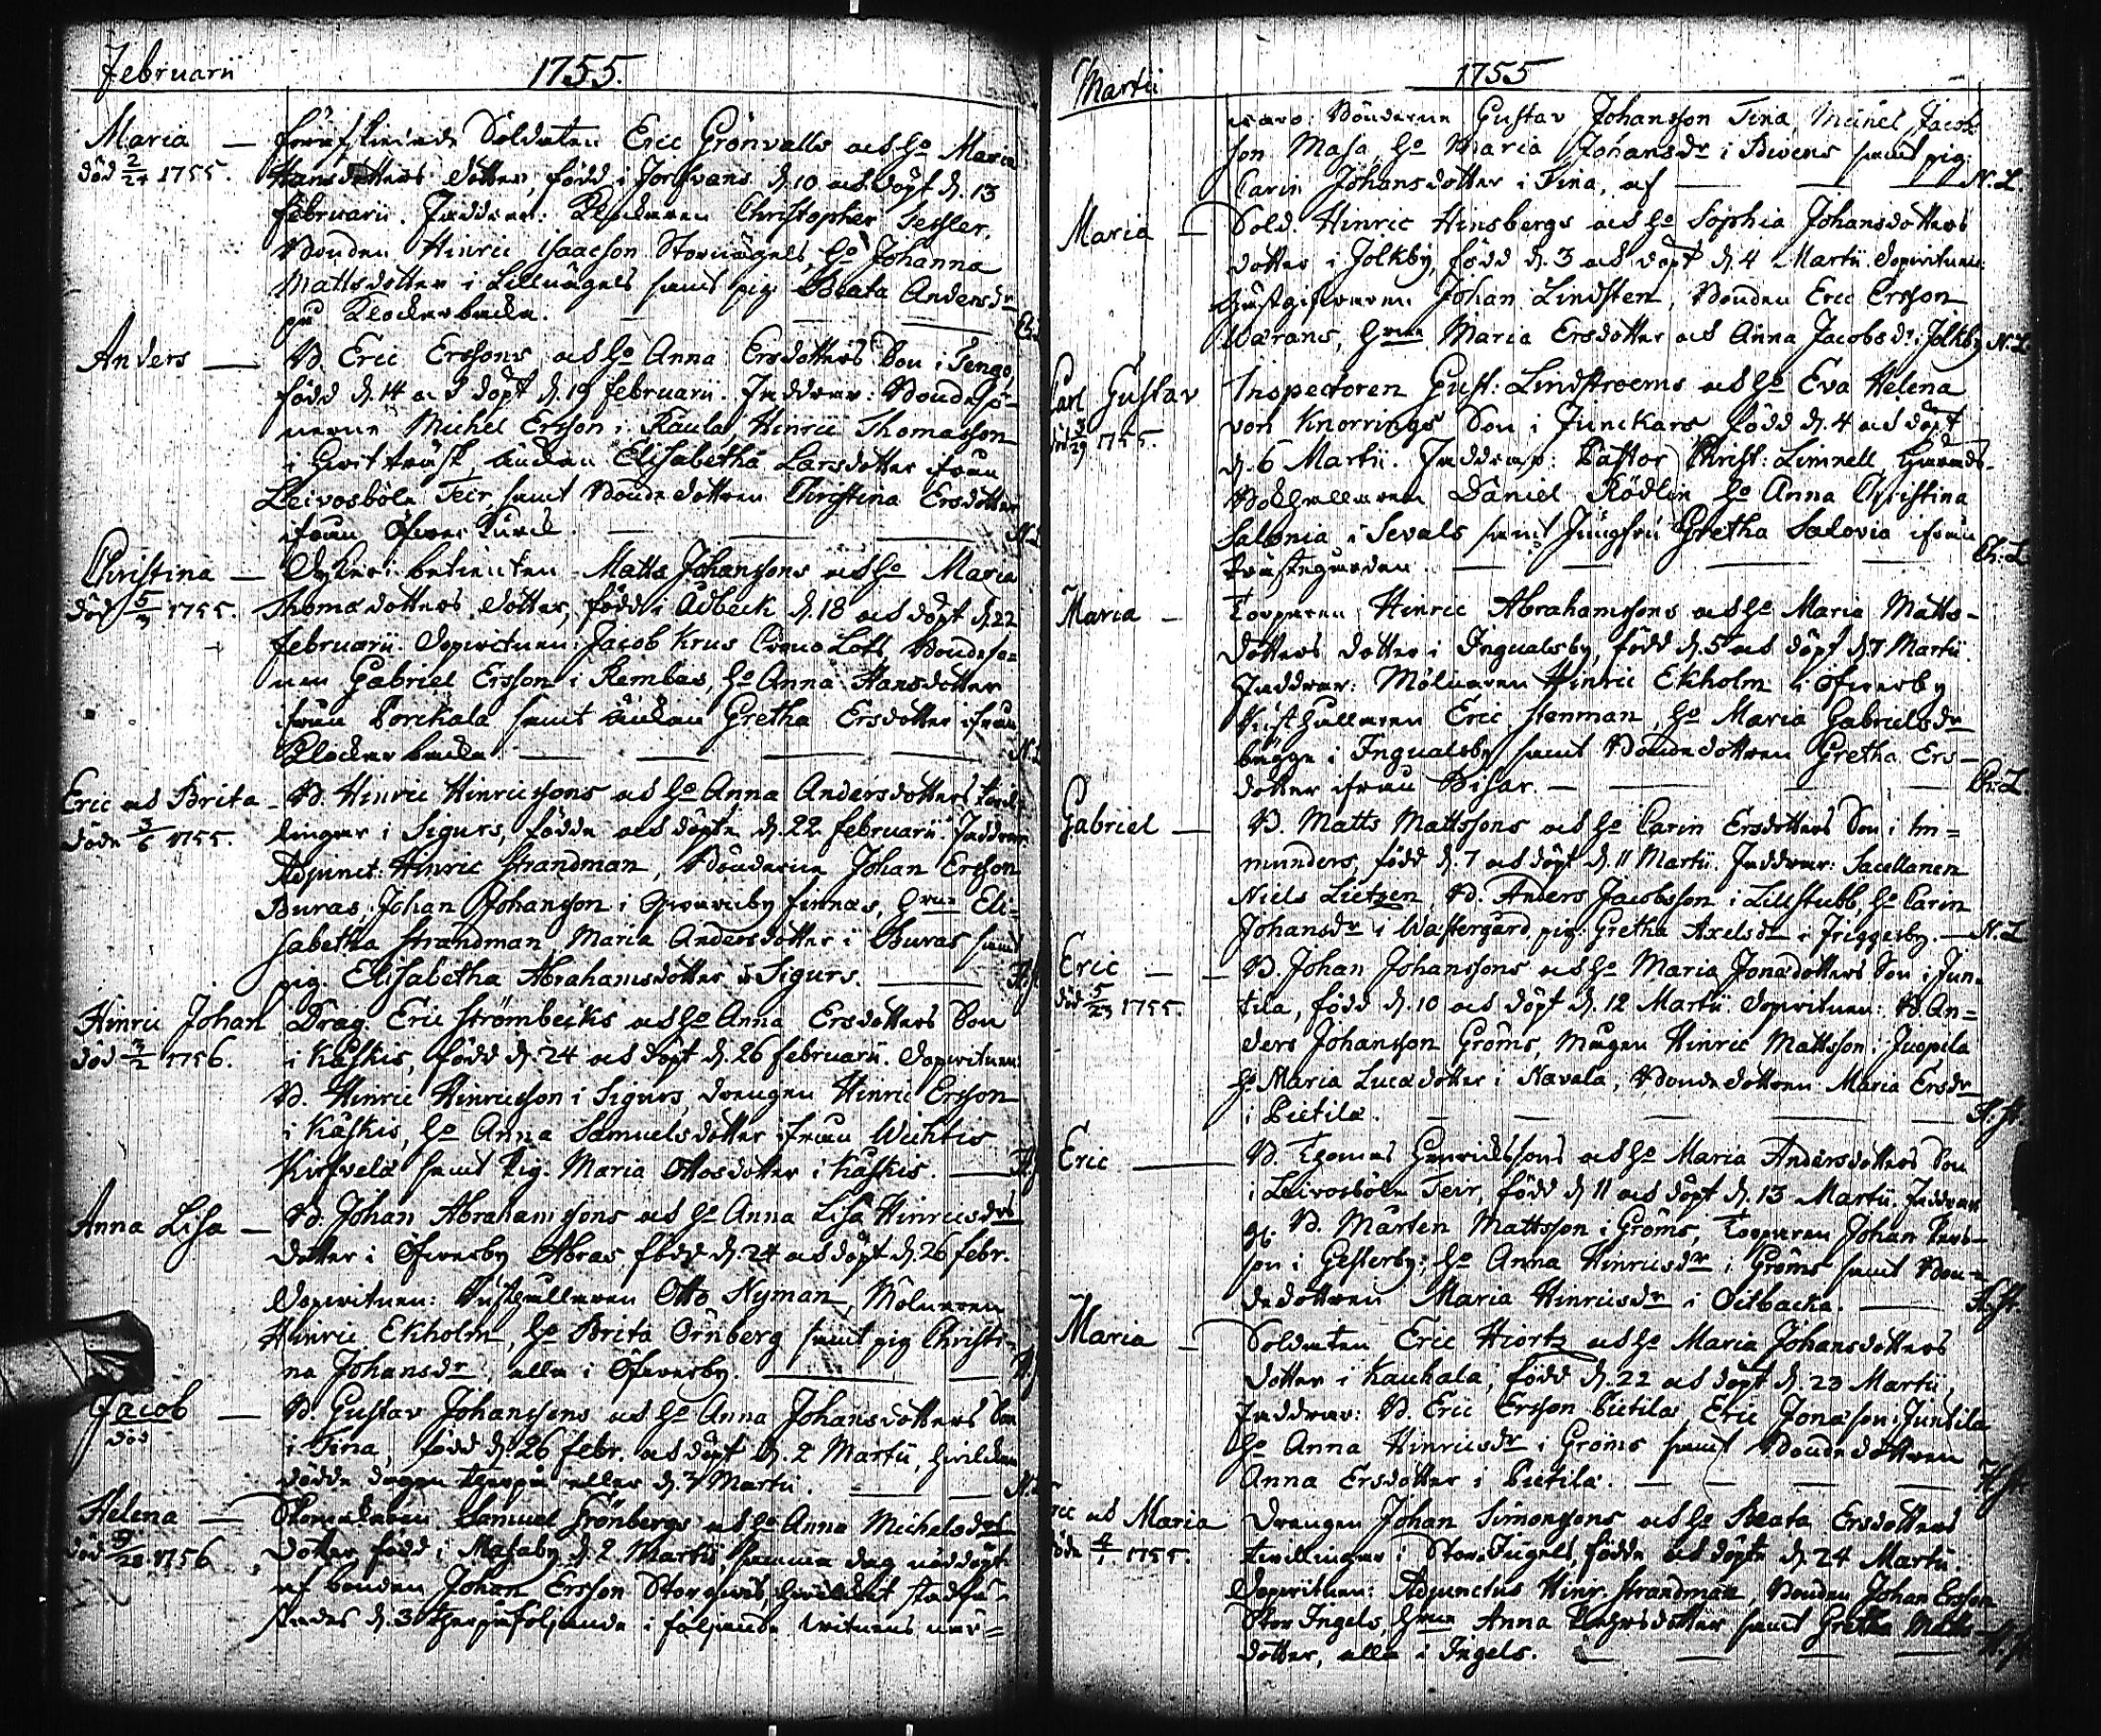 Februarii 1755.
Maria — Soldaten Eric Grönvalls och Ho Maria
död 2/24 1755. Hansdotters dotter, född i Jorfvans d. 10 och döpt d. 13
Februarii. Faddrar: Klockaren Christopher Sessler,
Bonden Hinric Isaacson Storingels, Ho Johanna
Mattsdotter i Lillingels samt pig. Beata Andersdr
på Klockarbacka.
Anders — B. Eric Erssons och Ho Anna Ersdotters Son i Tengo,
född d. 14 och döpt d. 19 februarii. Faddrar: Bondesö-
nerne Michel Ersson i Kaula, Hinric Thomasson
i Hvitträsk, änkan Elisabetha Larsdotter ifrån
Leivosböle Teir, samt Bondedottren Christina Ersdotter
ifrån Öfver Kurck.
Christina — betienten Matts Johanssons och Ho Maria
död 5/3 1755. Thomædotters dotter, född i Åbeck d. 18 och döpt d. 22
februarii. Dopvittnen: Jacob Krus Lots Bondeso=
nen Gabriel Ersson i Rembas, Ho Anna Hansdotter
ifrån Porckala samt änkan Gretha Ersdotter ifrån
Klockarbacka. — N. L
Eric och Brita — B. Hinric Hinricssons och Ho Anna Andersdotters tvil-
döde 3/6 1755. lingar i Sigurs, födde och döpte d. 22 februarii. Faddrar
Adjunct: Hinric Strandman, Bönderne Johan Ersson
Buras, Johan Johansson i Qvarnby finnas, Hrne Eli=
sabetha Strandman, Maria Andersdotter i Buras samt
pig. Elisabetha Abrahamsdotter i Sigurs.
Hinric Johan Drag. Eric Strömbecks och Ho Anna Ersdotters Son
död 3/2 1756. i Käskis, född d. 24 och döpt d. 26 februarii. Dopvittnen
B. Hinric Hinricsson i Sigurs, drengen Hinric Ersson
i Käskis, Ho Anna Samuelsdotter ifrån Wichtis
Kirfvelä samt Pig. Maria Ottosdotter i Käskis.
Anna Lisa — B. Johan Abrahamssons och Ho Anna Lisa Hinricsdrs
dotter i Öfverby Abras, född d. 24 och döpt d. 26 febr.
Dopvittnen: Otto Nyman, Mölnaren
Hinric Ekholm, Ho Brita Örnberg samt pig Christi-
na Johansdr, alla i Öfverby.
Jacob — B. Gustav Johanssons och Ho Anna Johansdotters Son
död i Tina, född d. 26 febr. och döpt d. 2 Martii, hvilcken
dödde dagen therpå eller d. 3 Martii.
Helena — Samuel Grönbergs och Ho Anna Michelsdrs
död 9/28 1756. dotter född i Masaby d. 2 Martii, samma dag nöddöpt
af bonden Johan Ersson Storqvis, hvilcket stadfä-
stades d. 3 therpåföljande i följande vittnens när=
Martii 1755
varo: Bönderne Gustav Johansson Tina, Michel Jacob-
son Masa, Ho Maria Johansdr i Bivens samt pig.
Carin Johansdotter i Tina, af — N. L.
Maria — Sold. Hinric Hinsbergs och Ho Sophia Johansdotters
dotter i Jolkby, född d. 3 och döpt d. 4 Martii. Dopvittnen:
Gästgifvaren Johan Lindsten, Bonden Eric Ersson
Wårans, Hrne Maria Ersdotter och Anna Jacobsdr i Jolkby N. L.
Carl Gustav Inspectoren Gust: Lindstroems och Ho Eva Helena
död 3/29 1755. von Knorrings Son i Junckars född d. 4 och döpt
d. 6 Martii. Faddrar: Pastor Christ: Limnell, Härads-
Bokhållaren Daniel Rödlin Ho Anna Christina
Salonia i Sevals samt Jungfru Gretha Salovia ifrån
Prästegården. — Ch: L
Maria — Torparen Hinric Abrahamssons och Ho Maria Matts-
dotters dotter i Ingvalsby, född d. 5 och döpt d. 7 Martii
Faddrar: Mölnaren Hinric Ekholm i Öfverby
Eric Stenman, Ho Maria Gabrielsdr
bägge i Ingvalsby samt Bondedottren Gretha Ers-
dotter ifrån Bisar. — Ch: L
Gabriel — B. Matts Mattssons och Ho Carin Ersdotters Son i Im=
munders, född d. 7 och döpt d. 11 Martii. Faddrar: Sacellanen
Niels Lietzen, B. Anders Jacobsson i Lillstubb, Ho Carin
Johansdr i Wästergård, pig: Gretha Axelsdr i Friggesby. — N. L
Eric — B. Johan Johanssons och Ho Maria Jonædotters Son i Jun-
död 5/23 1755. tila, född d. 10 och döpt d. 12 Martii. Dopvittnen: B. An=
ders Johansson Gröms, Mågen Hinric Mattsson i Juopila
Ho Maria Lucædotter i Navala, Bondedottren Maria Ersdr
i Pietilä. — H. St.
Eric — B. Thomas Henricssons och Ho Maria Andersdotters Son
i Leivosböle Teir, född d 11 och döpt d. 13 Martii. Faddrar
B. Mårten Mattsson i Gröms, Torparen Johan Pers-
son i Gesterby; Ho Anna Hinricsdr i Gröms samt Bon-
dedottren Maria Hinricsdr i Oitbacka. — H. St.
Maria — Soldaten Eric Hiortz och Ho Maria Johansdotters
dotter i Kauhala, född d. 22 och döpt d. 23 Martii,
Faddrar: B. Eric Ersson Pietilä, Eric Jonæson Juntila
Ho Anna Hinricsdr i Gröms samt Bondedottren
Anna Ersdotter i Pietilä. — H. St.
Eric och Maria Drengen Johan Simonssons och Ho Beata Ersdotters
döde 4/1 1755. tvillingar i Stor Ingels, födde och döpte d. 24 Martii
Dopvittnen: Adjunctus Hinr. Strandman, Bonden Johan Ersson
Stor Ingels, Hrne Anna samt Gretha Matts-
dotter, alla i Ingels.